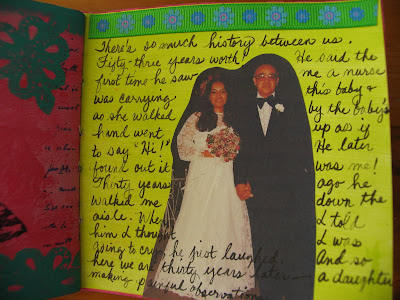 There's so much history between us.
Fifty-three years worth! He said the
first time he saw me a nurse
was carrying this baby &
as she walked by the baby's
hand went up as if
to say "Hi!" He later
found out it was me!
Thirty years ago he
walked me down the
aisle. When I told
him I thought I was
going to cry he just laughed. And so
here we are thirty years later— a daughter
making painful observations